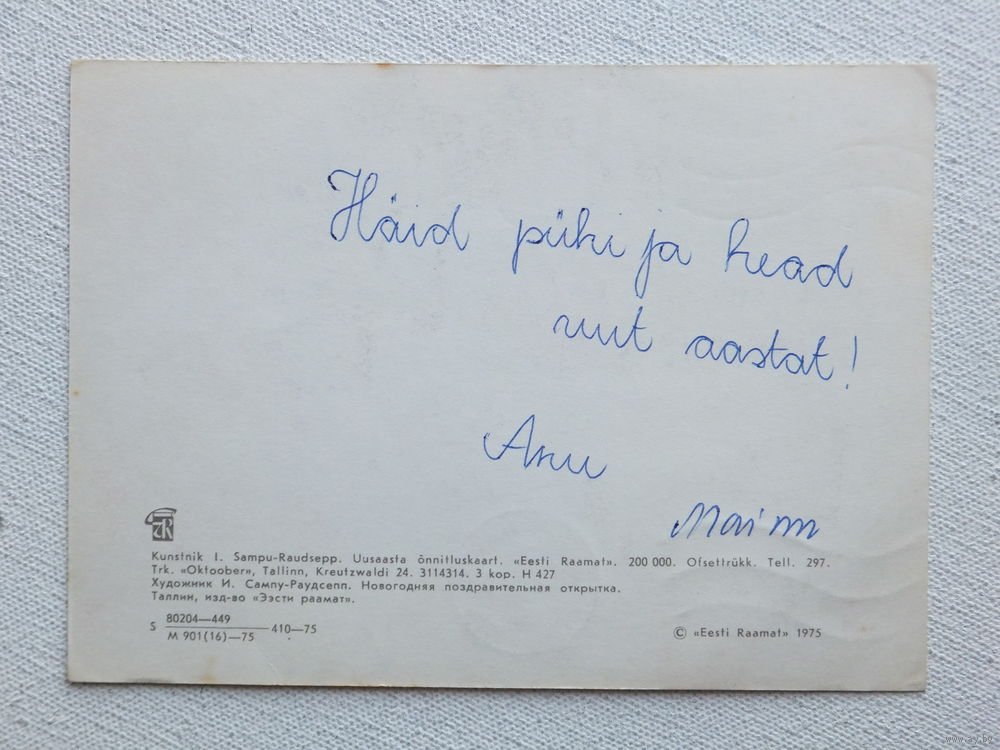 Häid pühi ja head
uut aastat!
Anu
Mai nn
Kunstnik I. Sampu-Raudsepp. Uusaasta õnnitluskaart. «Eesti Raamat». 200 000. Ofsettrükk. Tell. 297.
Trk. «Oktoober», Tallinn, Kreutzwaldi 24. 3114314. 3 kop. H 427
Художник И. Сампу-Раудсепп. Новогодняя поздравительная открытка.
Таллин, изд-во «Ээсти раамат».
S 80204—449
M 901(16)—75 410—75
© «Eesti Raamat» 1975
www.ay.by